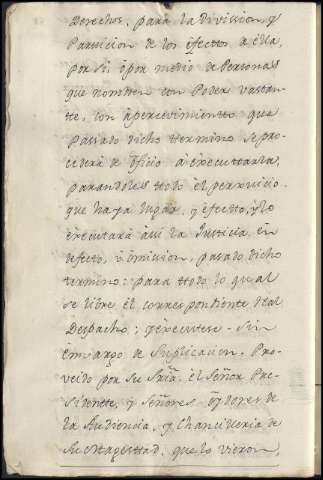 Derechos, para la Division y
Particion de los efectos de ella,
por si, ò por medio de Personas
que nombren con Poder vastan-
te, con apercevimiento que
Pasado dicho termino se pro-
cederà de oficio à executarla,
parandoles ttodo el perxuicio
que haya lugar, y efectto, y lo
èxecutarà àsi la Justicia en
defecto, ù omision, pasado dicho
termino: para ttodo lo qual
se libre èl correspondiente Real
Despacho; y èxecutese sin
èmbargo de Suplicacion. Pro-
veido por su Sria. èl Señor Pre-
sidentte, y Señores oydores de
la Audiencia, y Chancilleria de
Su Magesttad, que lo vieron,